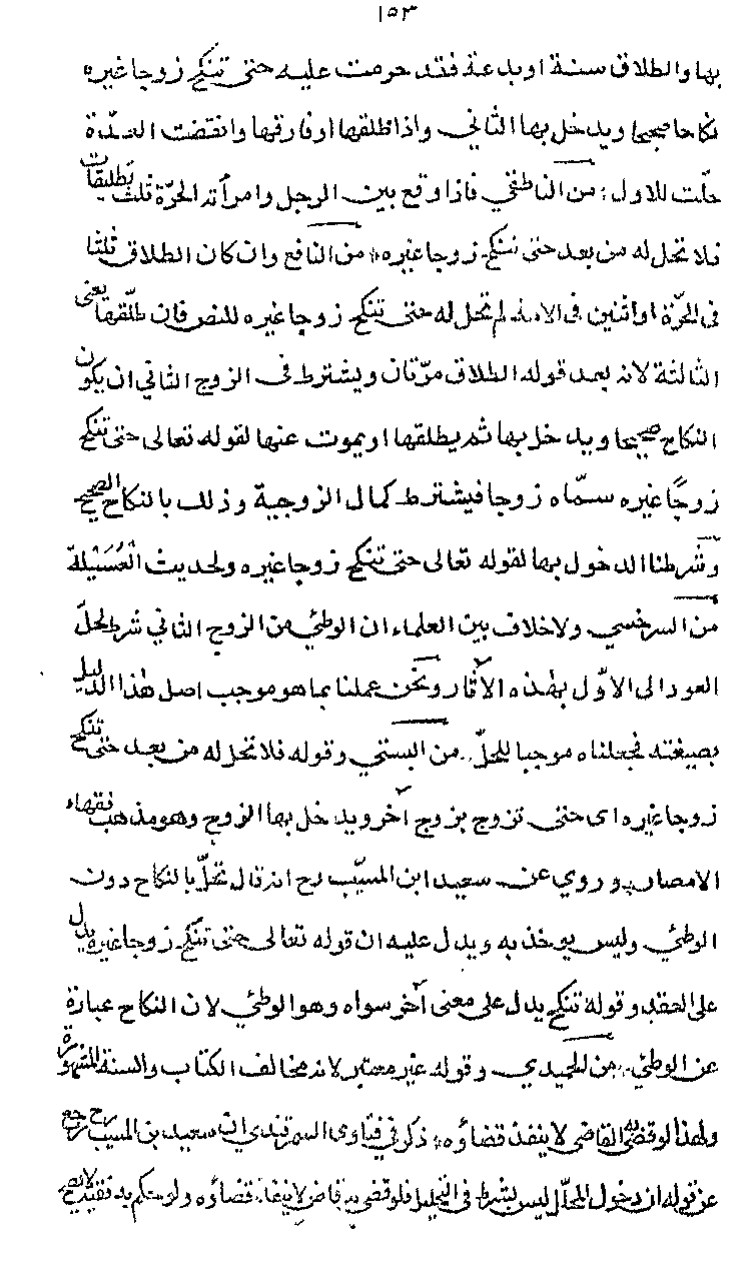 ١٥٣
بها والطلاق سنة او بدعة فقد حرمت عليه حتى تنكح زوجا غيره
نكاحا صحيحا ويدخل بها الثاني واذا طلقها او فارقها وانقضت العدّة
حلّت للاول من الناطفي فاذا وقع بين الرجل وامرأته الحرّة ثلث تطليقات
فلا تحل له من بعد حتى تنكح زوجا غيره من النافع وان كان الطلاق ثلثا
فى الحرّة او اثنين فى الامة لم تحل له حتى تنكح زوجا غيره للنص فان طلّقها يعنى
الثالثة لانه بعد قوله الطلاق مرّتان ويشترط فى الزوج الثاني ان يكون
النكاح صحيحا ويدخل بها ثم يطلقها او يموت عنها لقوله تعالى حتى تنكح
زوجًا غيره سمّاه زوجا فيشترط كمال الزوجية وذلك بالنكاح الصحيح
وشرطنا الدخول بها لقوله تعالى حتى تنكح زوجا غيره ولحديث العُسَيْلة
من السرخسي ولا خلاف بين العلماء ان الوطئ من الزوج الثاني شرط لحلّ
العود الى الاوّل بهذه الآثار ونحن عملنا بما هو موجب اصل هذا الدليل
بصيغته فجعلناه موجبا للحلّ من البستي وقوله فلا تحل له من بعد حتى تنكح
زوجا غيره اى حتى تزوج بزوج آخر ويدخل بها الزوج وهو مذهب فقهاء
الامصار وروي عن سعيد ابن المسيّب رح انه قال تحلّ بالنكاح دون
الوطئ وليس يوخذ به ويدل عليه ان قوله تعالى حتى تنكح زوجا غيره يدل
على العقد وقوله تنكح يدل على معنى آخر سواه وهو الوطئ لان النكاح عبارة
عن الوطئ من الحميدي وقوله غير معتبر لانه مخالف الكتاب والسنة المشهورة
ولهذا لو قضى به القاضي لا ينفذ قضاؤه ذكر في فتاوى السمرقندي ان سعيد بن المسيب رح رجع
عن قوله ان دخول المحلّل ليس بشرط فى التحليل فلو قضى به قاض لا ينفذ قضاؤه ولو حكم به فقيه لا يصح